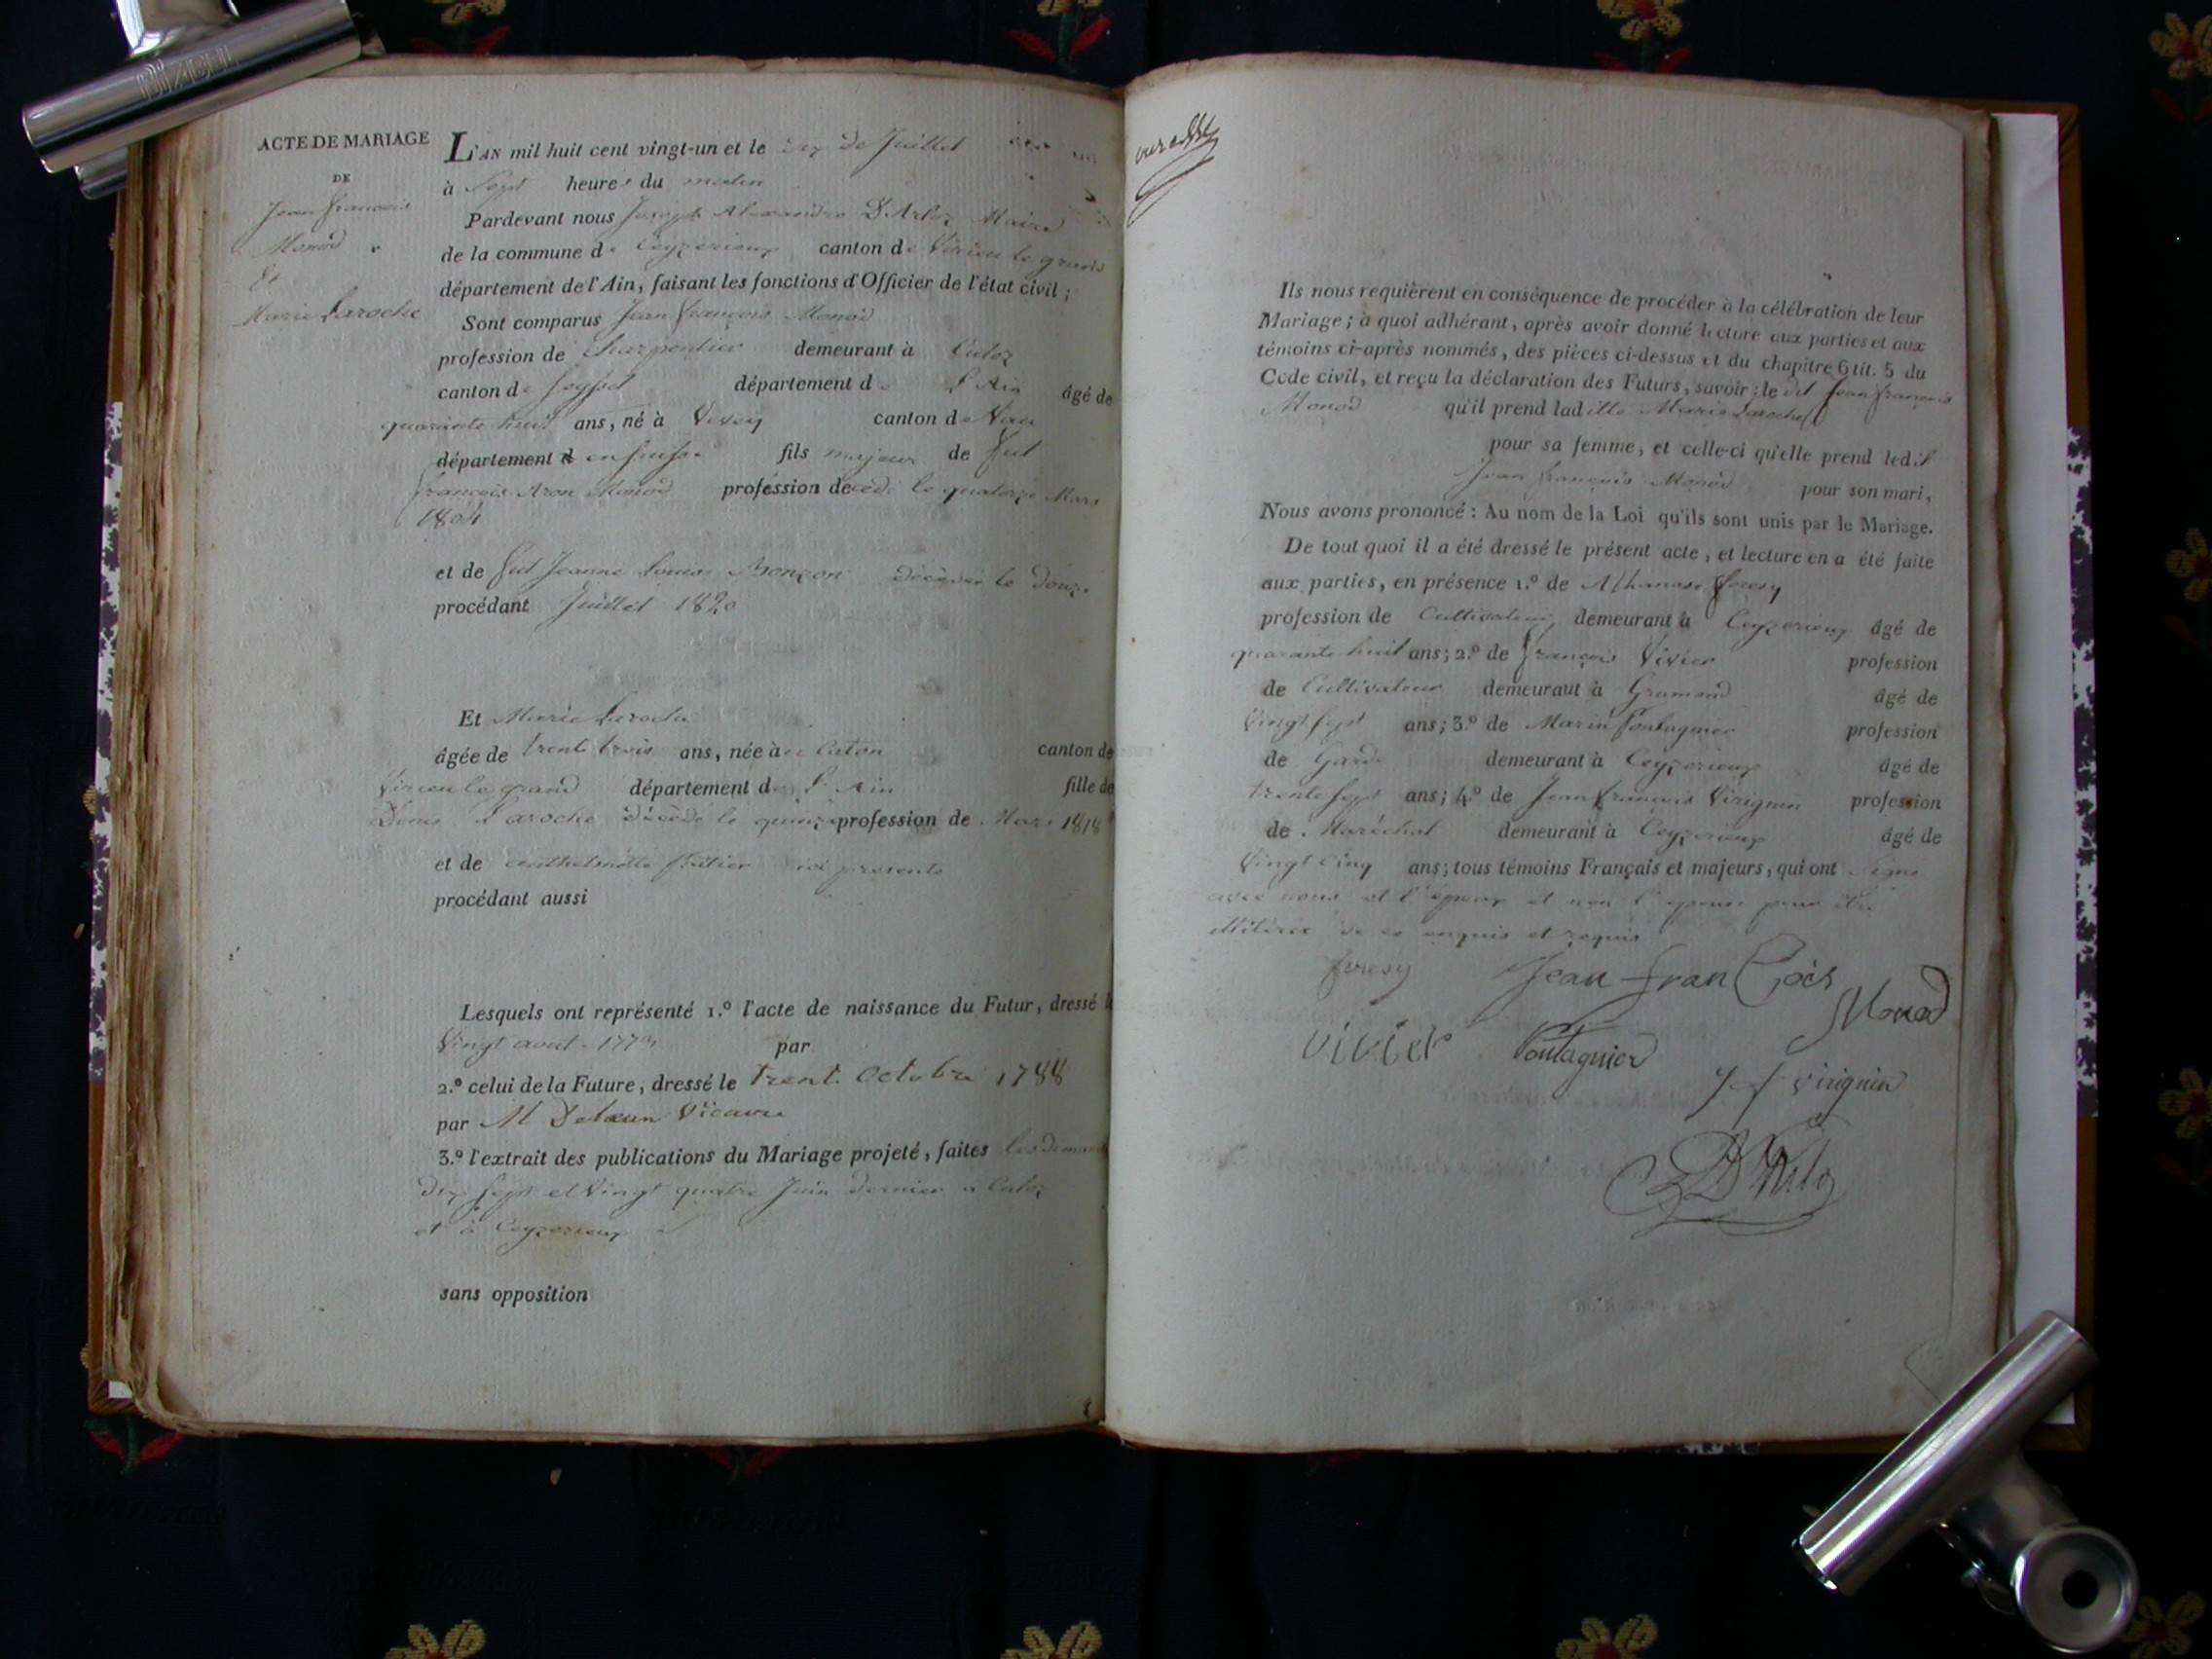 DIZBEL
ACTE DE MARIAGE
DE
Jean francois
Monod
&
Marie Laroche
L'AN mil huit cent vingt-un et le dix de Juillet
à Sept heures du matin
Pardevant nous Joseph Alexandre D'Arloz Maire
de la commune de Ceyzerieux canton de Virieu le grand
département de l'Ain, faisant les fonctions d'Officier de l'état civil ;
Sont comparus Jean françois Monod
profession de Charpentier demeurant à Culoz
canton de Seyssel département de L'Ain âgé de
quarante huit ans, né à Vevey canton de Vau
département en suisse fils majeur de fut
françois Aron Monod profession decédé le quatorze Mars
1804
et de fut Jeanne Louise décédée le douze
procédant Juillet 1820
Et Marie Laroche
âgée de trente trois ans, née à canton de
Virieu le grand département de L'Ain fille de
Denis Laroche décédé le quinze profession de Mars 1818
et de ici presente
procédant aussi
Lesquels ont représenté 1.º l'acte de naissance du Futur, dressé le
Vingt aout 1773 par
2.º celui de la Future, dressé le trent. Octobre 1788
par M Vicaire
3.º l'extrait des publications du Mariage projeté, faites les
dix sept et Vingt quatre Juin dernier a Culoz
et à Ceyzerieux
sans opposition
Ils nous requièrent en conséquence de procéder à la célébration de leur
Mariage ; à quoi adhérant, après avoir donné lecture aux parties et aux
témoins ci-après nommés, des pièces ci-dessus et du chapitre 6 tit. 5 du
Code civil, et reçu la déclaration des Futurs, savoir : le dit Jean françois
Monod qu'il prend laditte Marie Laroche
pour sa femme, et celle-ci qu'elle prend ledit
Jean françois Monod pour son mari,
Nous avons prononcé : Au nom de la Loi qu'ils sont unis par le Mariage.
De tout quoi il a été dressé le présent acte, et lecture en a été faite
aux parties, en présence 1.º de Athanase
profession de Cultivateur demeurant à Ceyzerieux âgé de
quarante huit ans ; 2.º de françois Vivier profession
de Cultivateur demeurant à Gramond âgé de
Vingt sept ans ; 3.º de Marin Pontagnier profession
de Garde demeurant à Ceyzerieux âgé de
trente sept ans ; 4.º de Jean françois Virignin profession
de Maréchal demeurant à Ceyzerieux âgé de
Vingt Cinq ans ; tous témoins Français et majeurs, qui ont Signé
avec nous et l'époux et non l'epouse pour être
illitérée de ce enquis et requis
Jean franÇois
Monod
vivier Pontagnier
j f virignin
D'Arloz